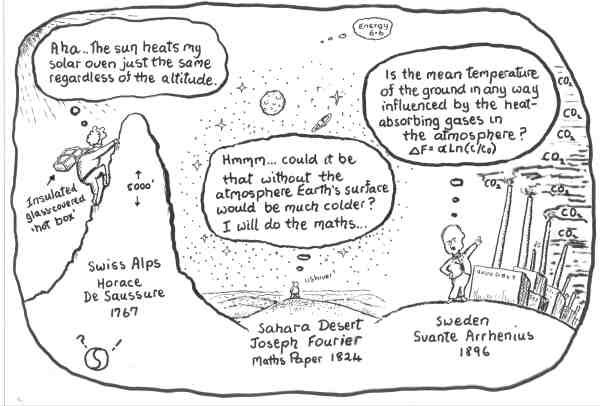 Energy
6.6
Aha.. The sun heats my
solar oven just the same
regardless of the altitude.
Is the mean temperature
of the ground in any way
influenced by the heat-
absorbing gases in
the atmosphere?
ΔF = αLn(C/C₀)
CO₂
CO₂
CO₂
CO₂
CO₂
CO₂
CO₂
CO₂
CO₂
Hmmm... could it be
that without the
atmosphere Earth's surface
would be much colder?
I will do the maths...
Insulated
glass-covered
'hot box'
↑
5000'
↓
Swiss Alps
Horace
De Saussure
1767
?
!
Sahara Desert
Joseph Fourier
Maths Paper 1824
Sweden
Svante Arrhenius
1896